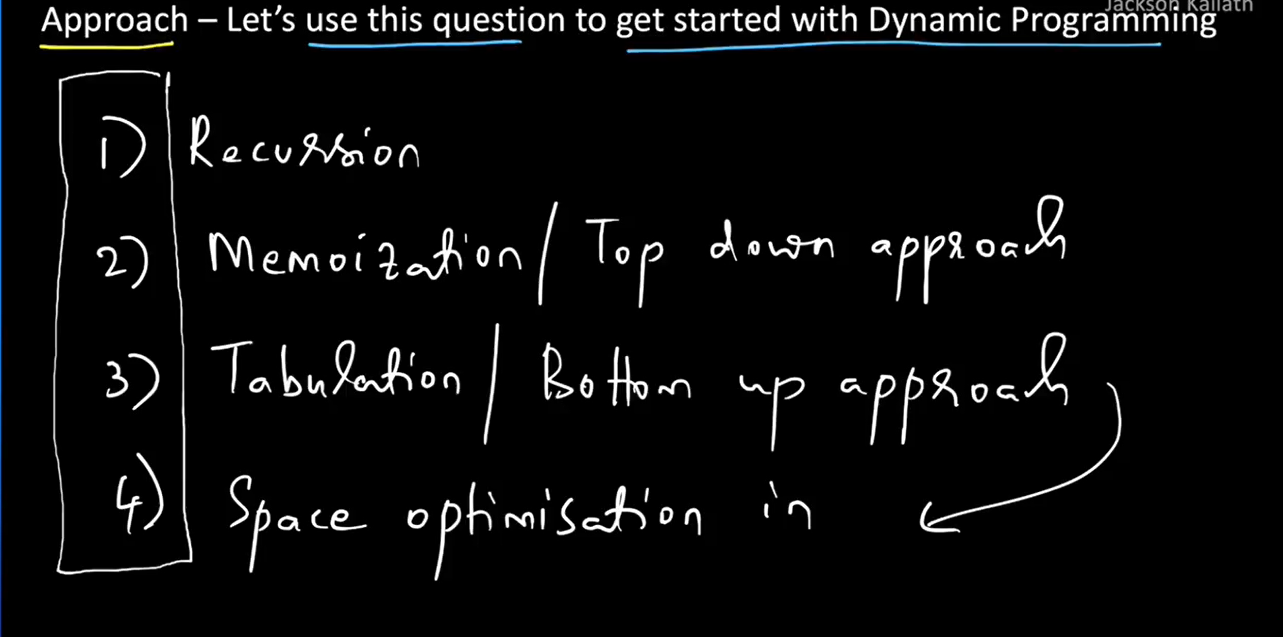 Jackson Kailath
Approach – Let's use this question to get started with Dynamic Programming
1) Recursion
2) Memoization / Top down approach
3) Tabulation / Bottom up approach
4) Space optimisation in